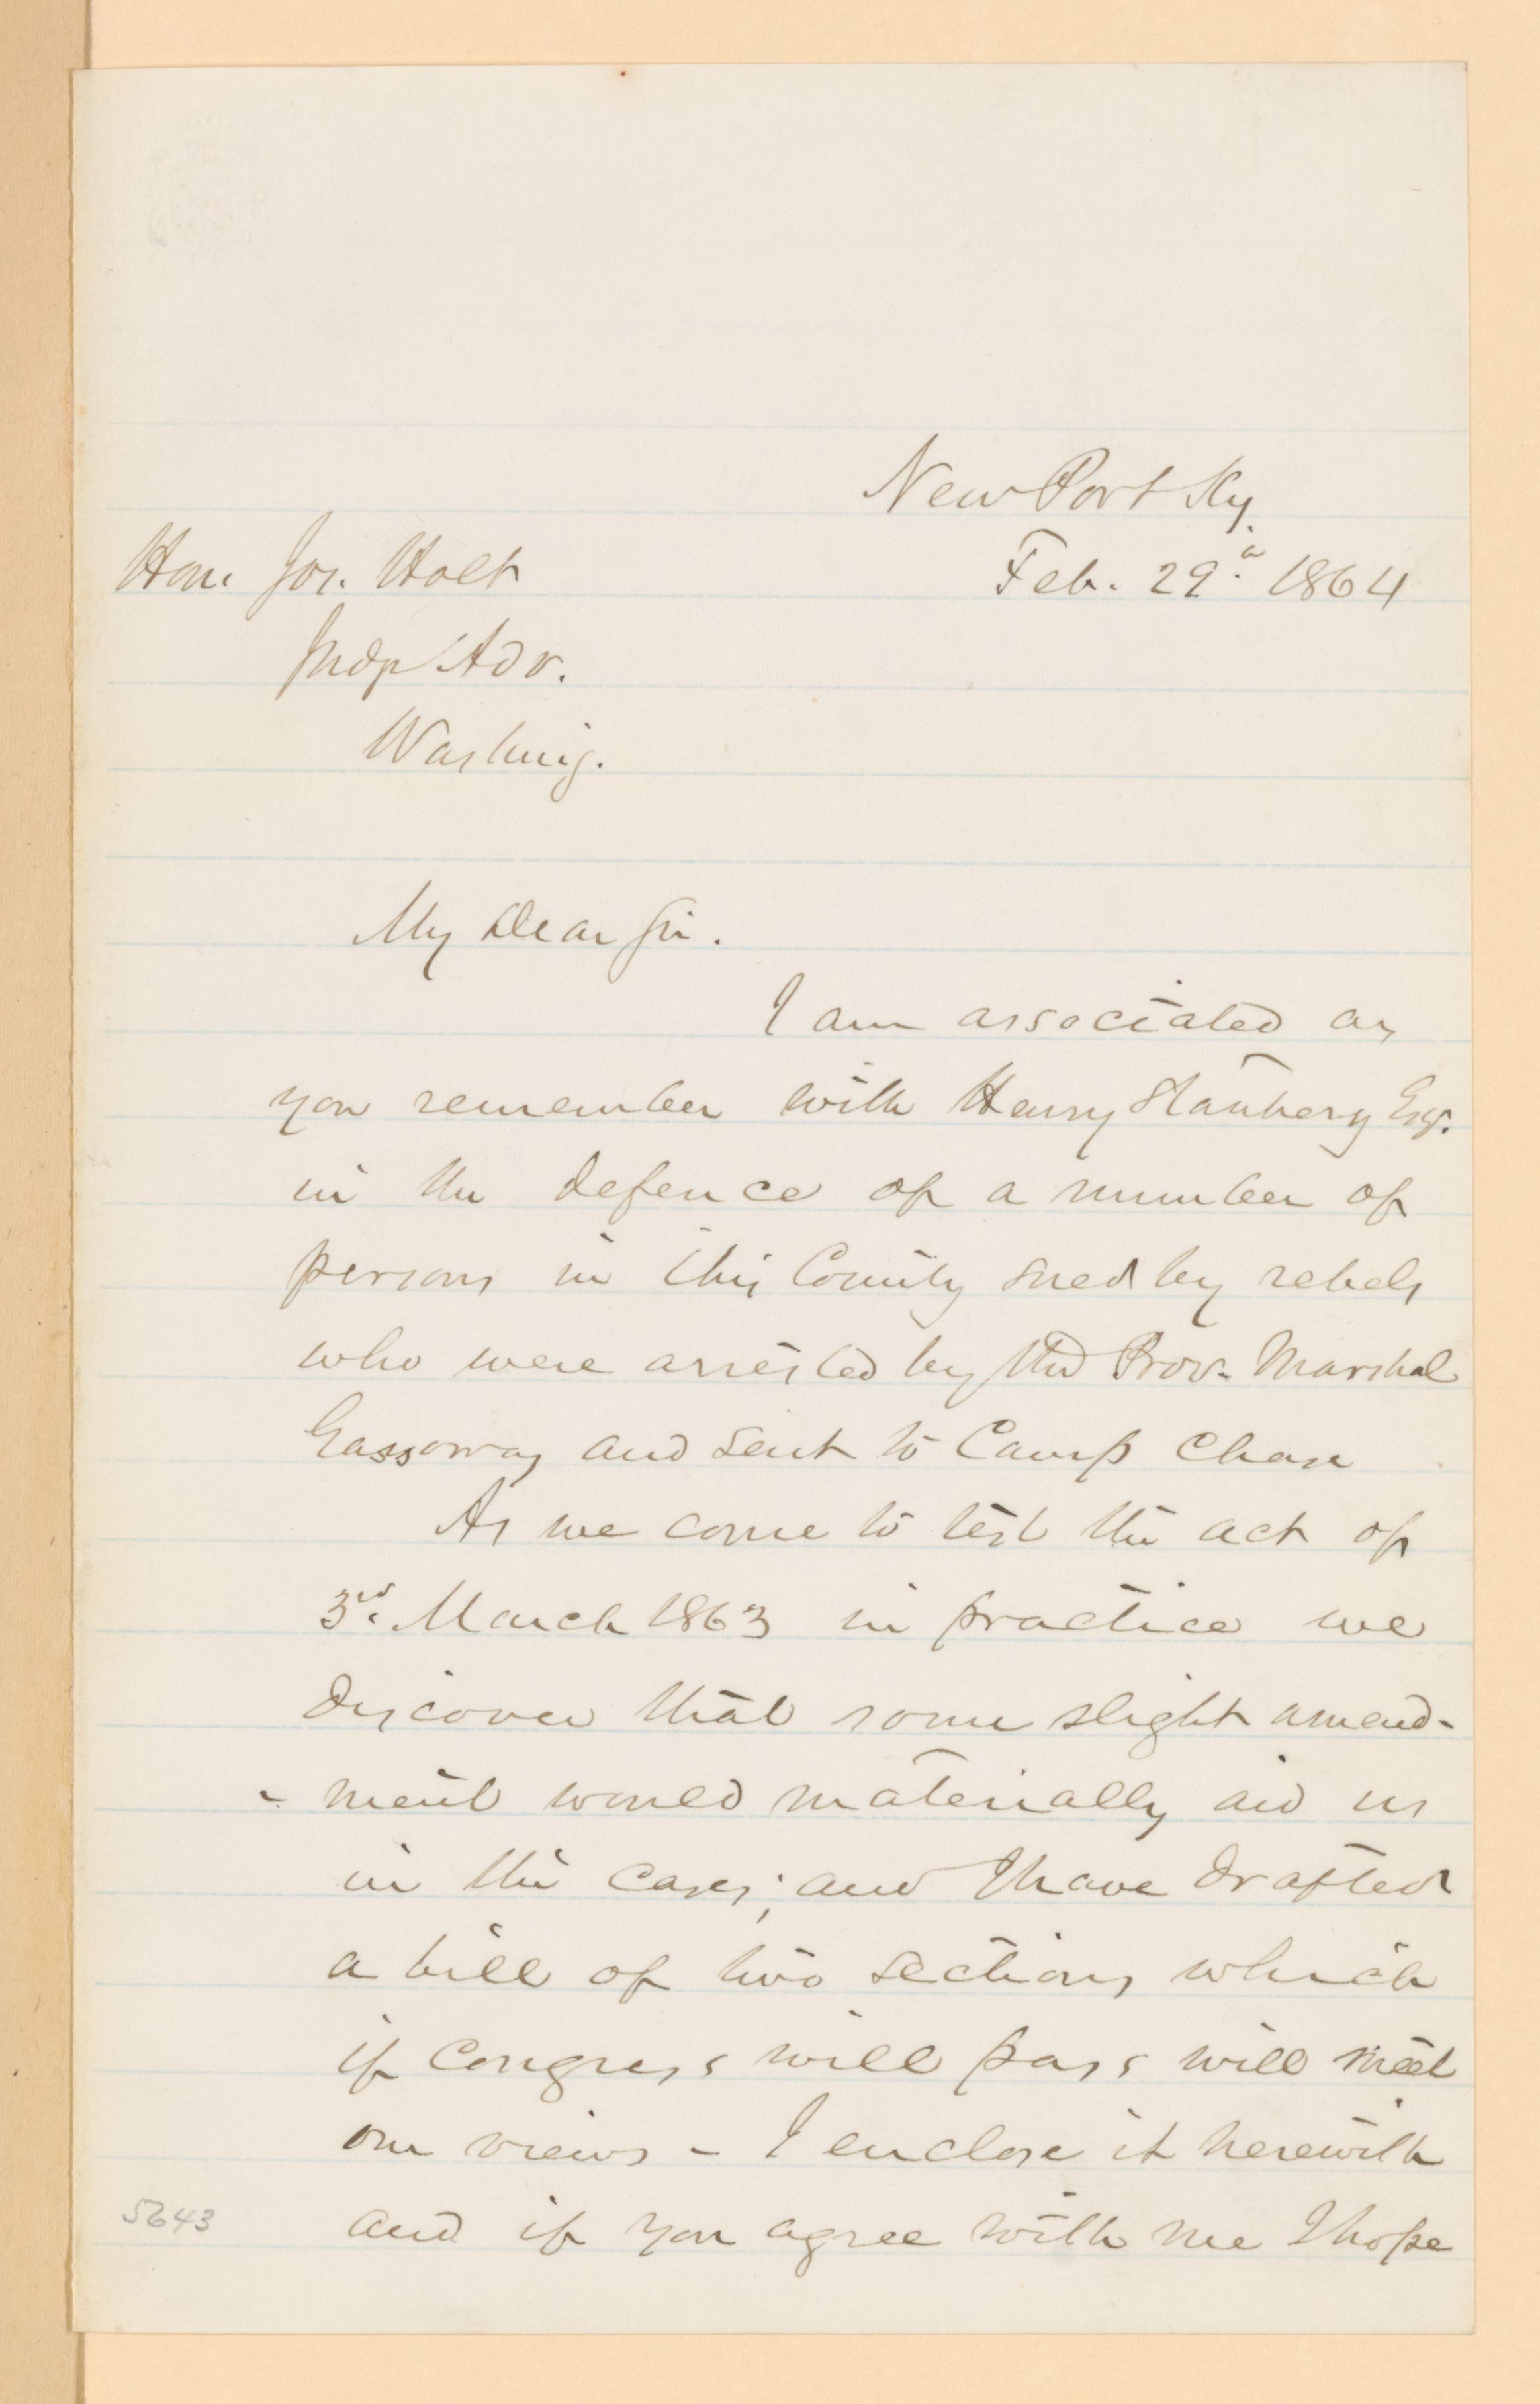 New Port Ky.
Feb. 29. 1864
Hon. Jos. Holt
Judge Adv.
Washing.
My Dear Sir.
I am associated as
you remember with Henry Stanbery Esq.
in the defence of a number of
persons in this County sued by rebels
who were arrested by the Prov. Marshal
Gassoway and sent to Camp Chase
As we come to test the act of
3rd. March 1863 in practice we
discover that some slight amend-
- ment would materially aid us
in the cases; and I have drafted
a bill of two sections which
if Congress will pass will meet
our views - I enclose it herewith
and if you agree with me I hope
5643